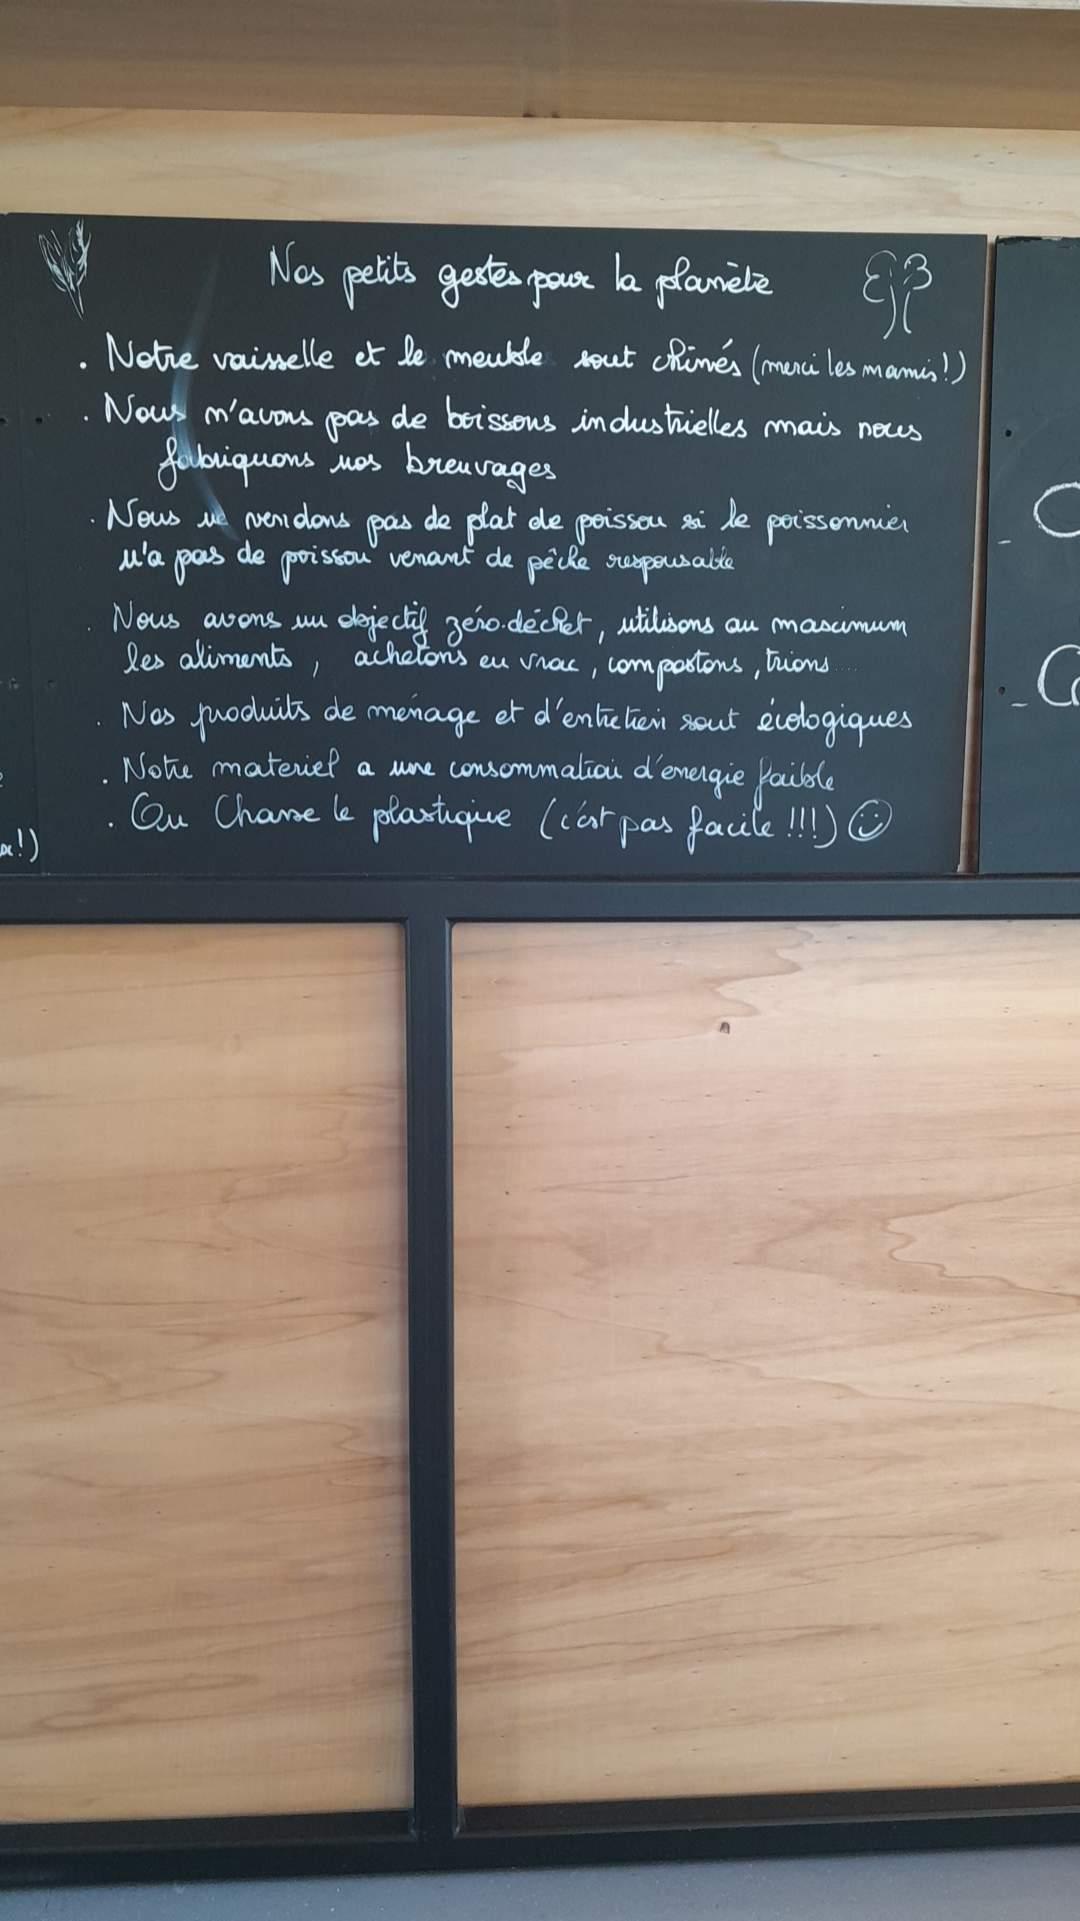 Nos petits gestes pour la planète
. Notre vaisselle et le meuble sont chinés (merci les mamis!)
. Nous n'avons pas de boissons industrielles mais nous
fabriquons nos breuvages
. Nous ne vendons pas de plat de poisson si le poissonnier
n'a pas de poisson venant de pêche responsable
. Nous avons un objectif zéro.déchet, utilisons au maximum
les aliments, achetons en vrac, compostons, trions ....
. Nos produits de ménage et d'entretien sont écologiques
. Notre materiel a une consommation d'energie faible
. On Chasse le plastique (c'est pas facile !!!) ☺